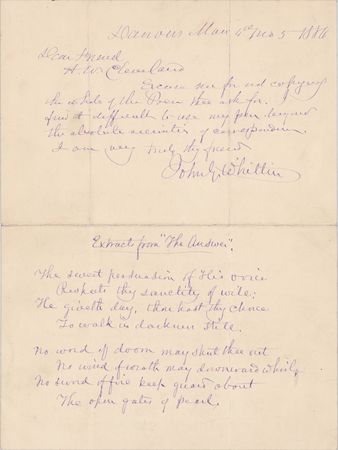 Danvers Mass 4th Mo 5 1884
Dear Friend
H. W. Cleveland
Excuse me for not copying
the whole of the Poem thee ask for. I
find it difficult to use my pen beyond
the absolute necessities of correspondence.
I am very truly thy friend
John G. Whittier
Extract from "The Answer".
The sweet persuasion of His voice
Respects thy sanctity of will;
He giveth day, thou hast thy choice
To walk in darkness still.
No word of doom may shut thee out
No wind of wrath may downward whirl,
No sword of fire keep guard about
The open gates of pearl.